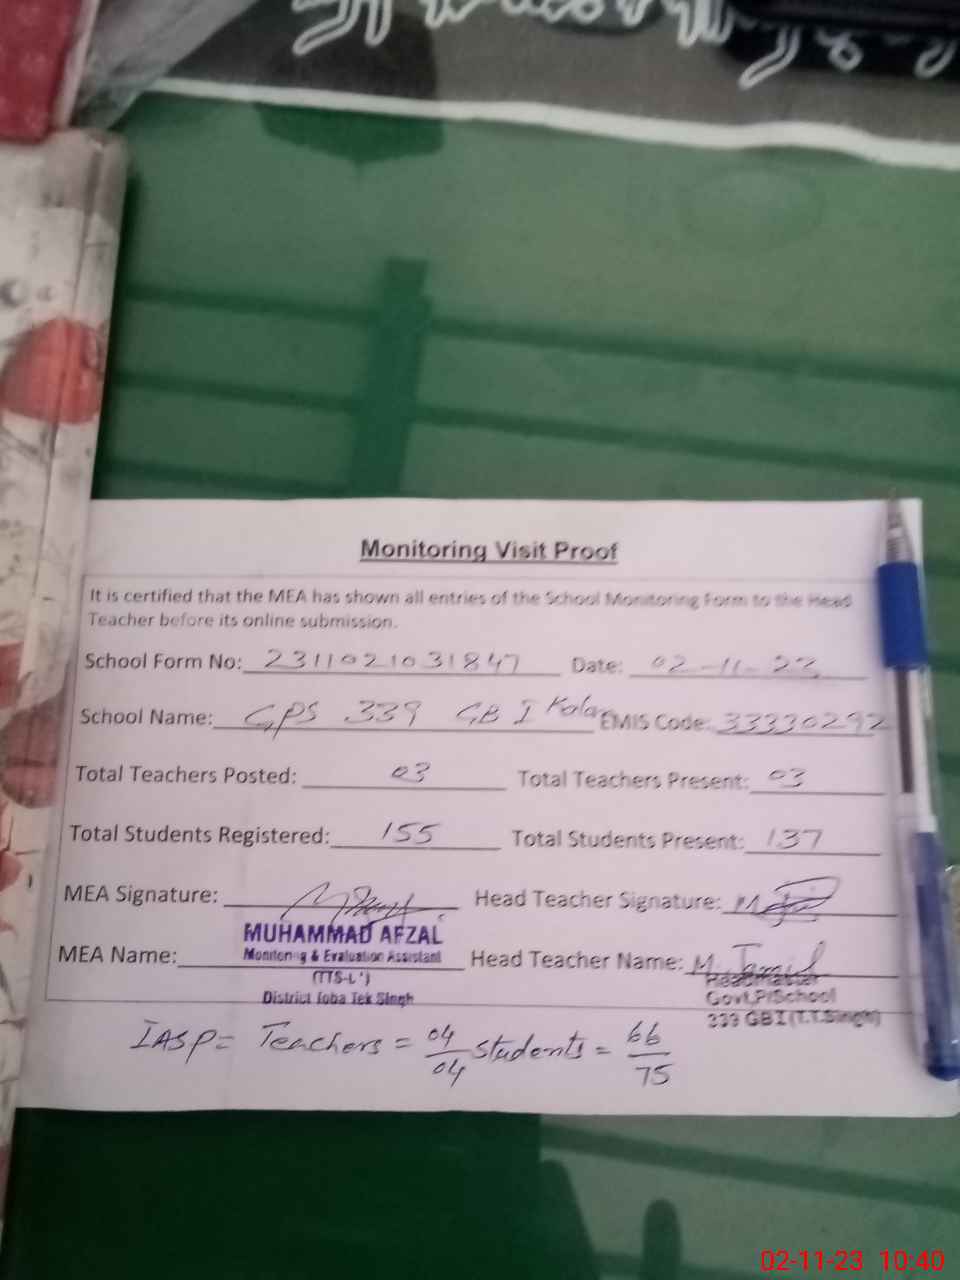 Monitoring Visit Proof
It is certified that the MEA has shown all entries of the School Monitoring Form to the Head
Teacher before its online submission.
School Form No: 2311021031847 Date: 02-11-23
School Name: GPS 339 GB I Kalan EMIS Code: 33330292
Total Teachers Posted: 03 Total Teachers Present: 03
Total Students Registered: 155 Total Students Present: 137
MEA Signature: Head Teacher Signature:
MUHAMMAD AFZAL
MEA Name: Monitoring & Evaluation Assistant Head Teacher Name: M. Jamil
(TTS-L
Headmaster
District Toba Tek Singh Govt.P/School
339 GB I (T.T.Singh)
IASP= Teachers = 04/04 students = 66/75
02-11-23 10:40